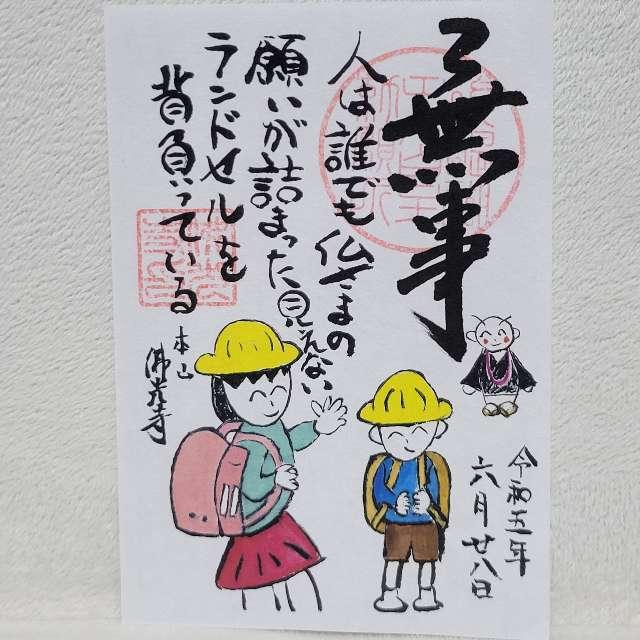 無事
人は誰でも仏さまの
願いが詰まった見えない
ランドセルを
背負っている
本山
佛光寺
令和五年
六月廿八日